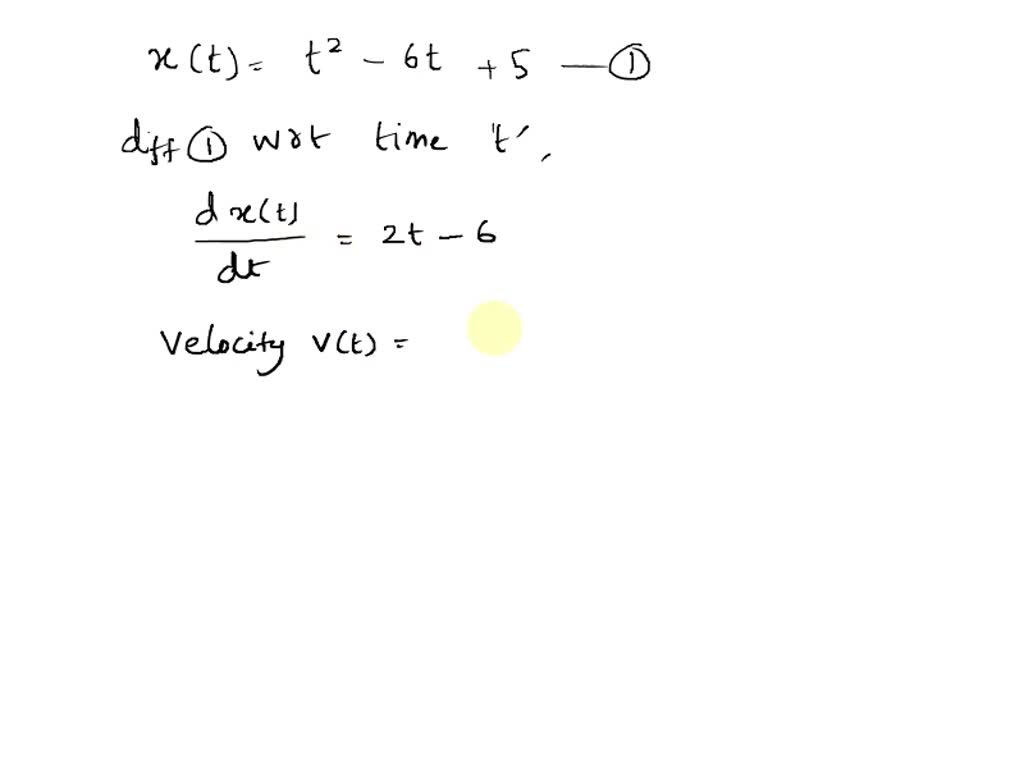 x(t) = t² - 6t + 5 — ①
diff ① wrt time 't',
dx(t)/dt = 2t - 6
Velocity v(t) =